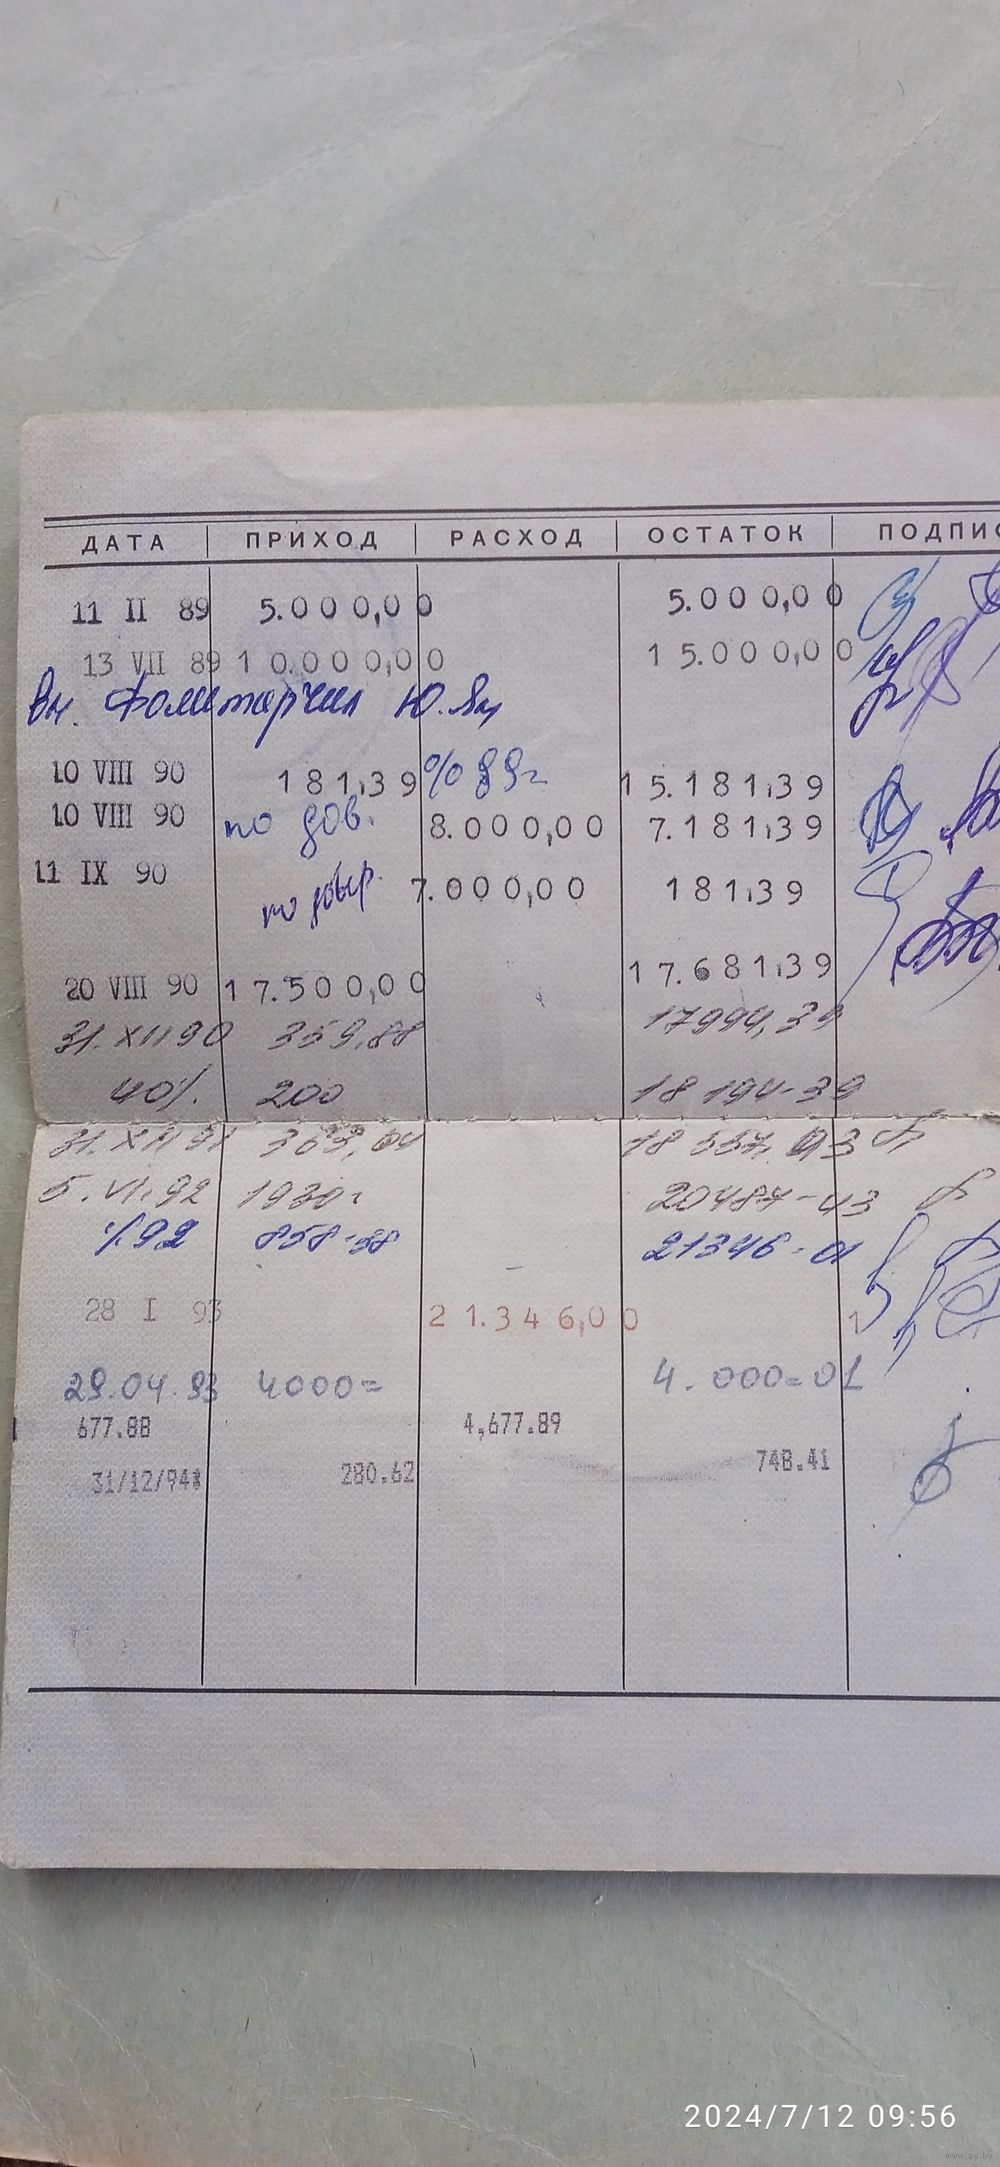 ДАТА ПРИХОД РАСХОД ОСТАТОК ПОДПИС
11 II 89 5.000,00 5.000,00
13 VII 89 10.000,00 15.000,00
Вн. Ю.
10 VIII 90 181,39 % 89г 15.181,39
10 VIII 90 по дов. 8.000,00 7.181,39
11 IX 90 по довер. 7.000,00 181,39
20 VIII 90 17.500,00 17.681,39
31.XII 90 17994,39
40%. 200 18 194-39
31.XII 91 18 557,43
5.VI.92 1930 20487-43
%92 858-58 21346-01
28 I 93 21.346,00
29.04.93 4000= 4.000=01
677.88 4,677.89
31/12/94 280.62 748.41
2024/7/12 09:56
www.ay.by